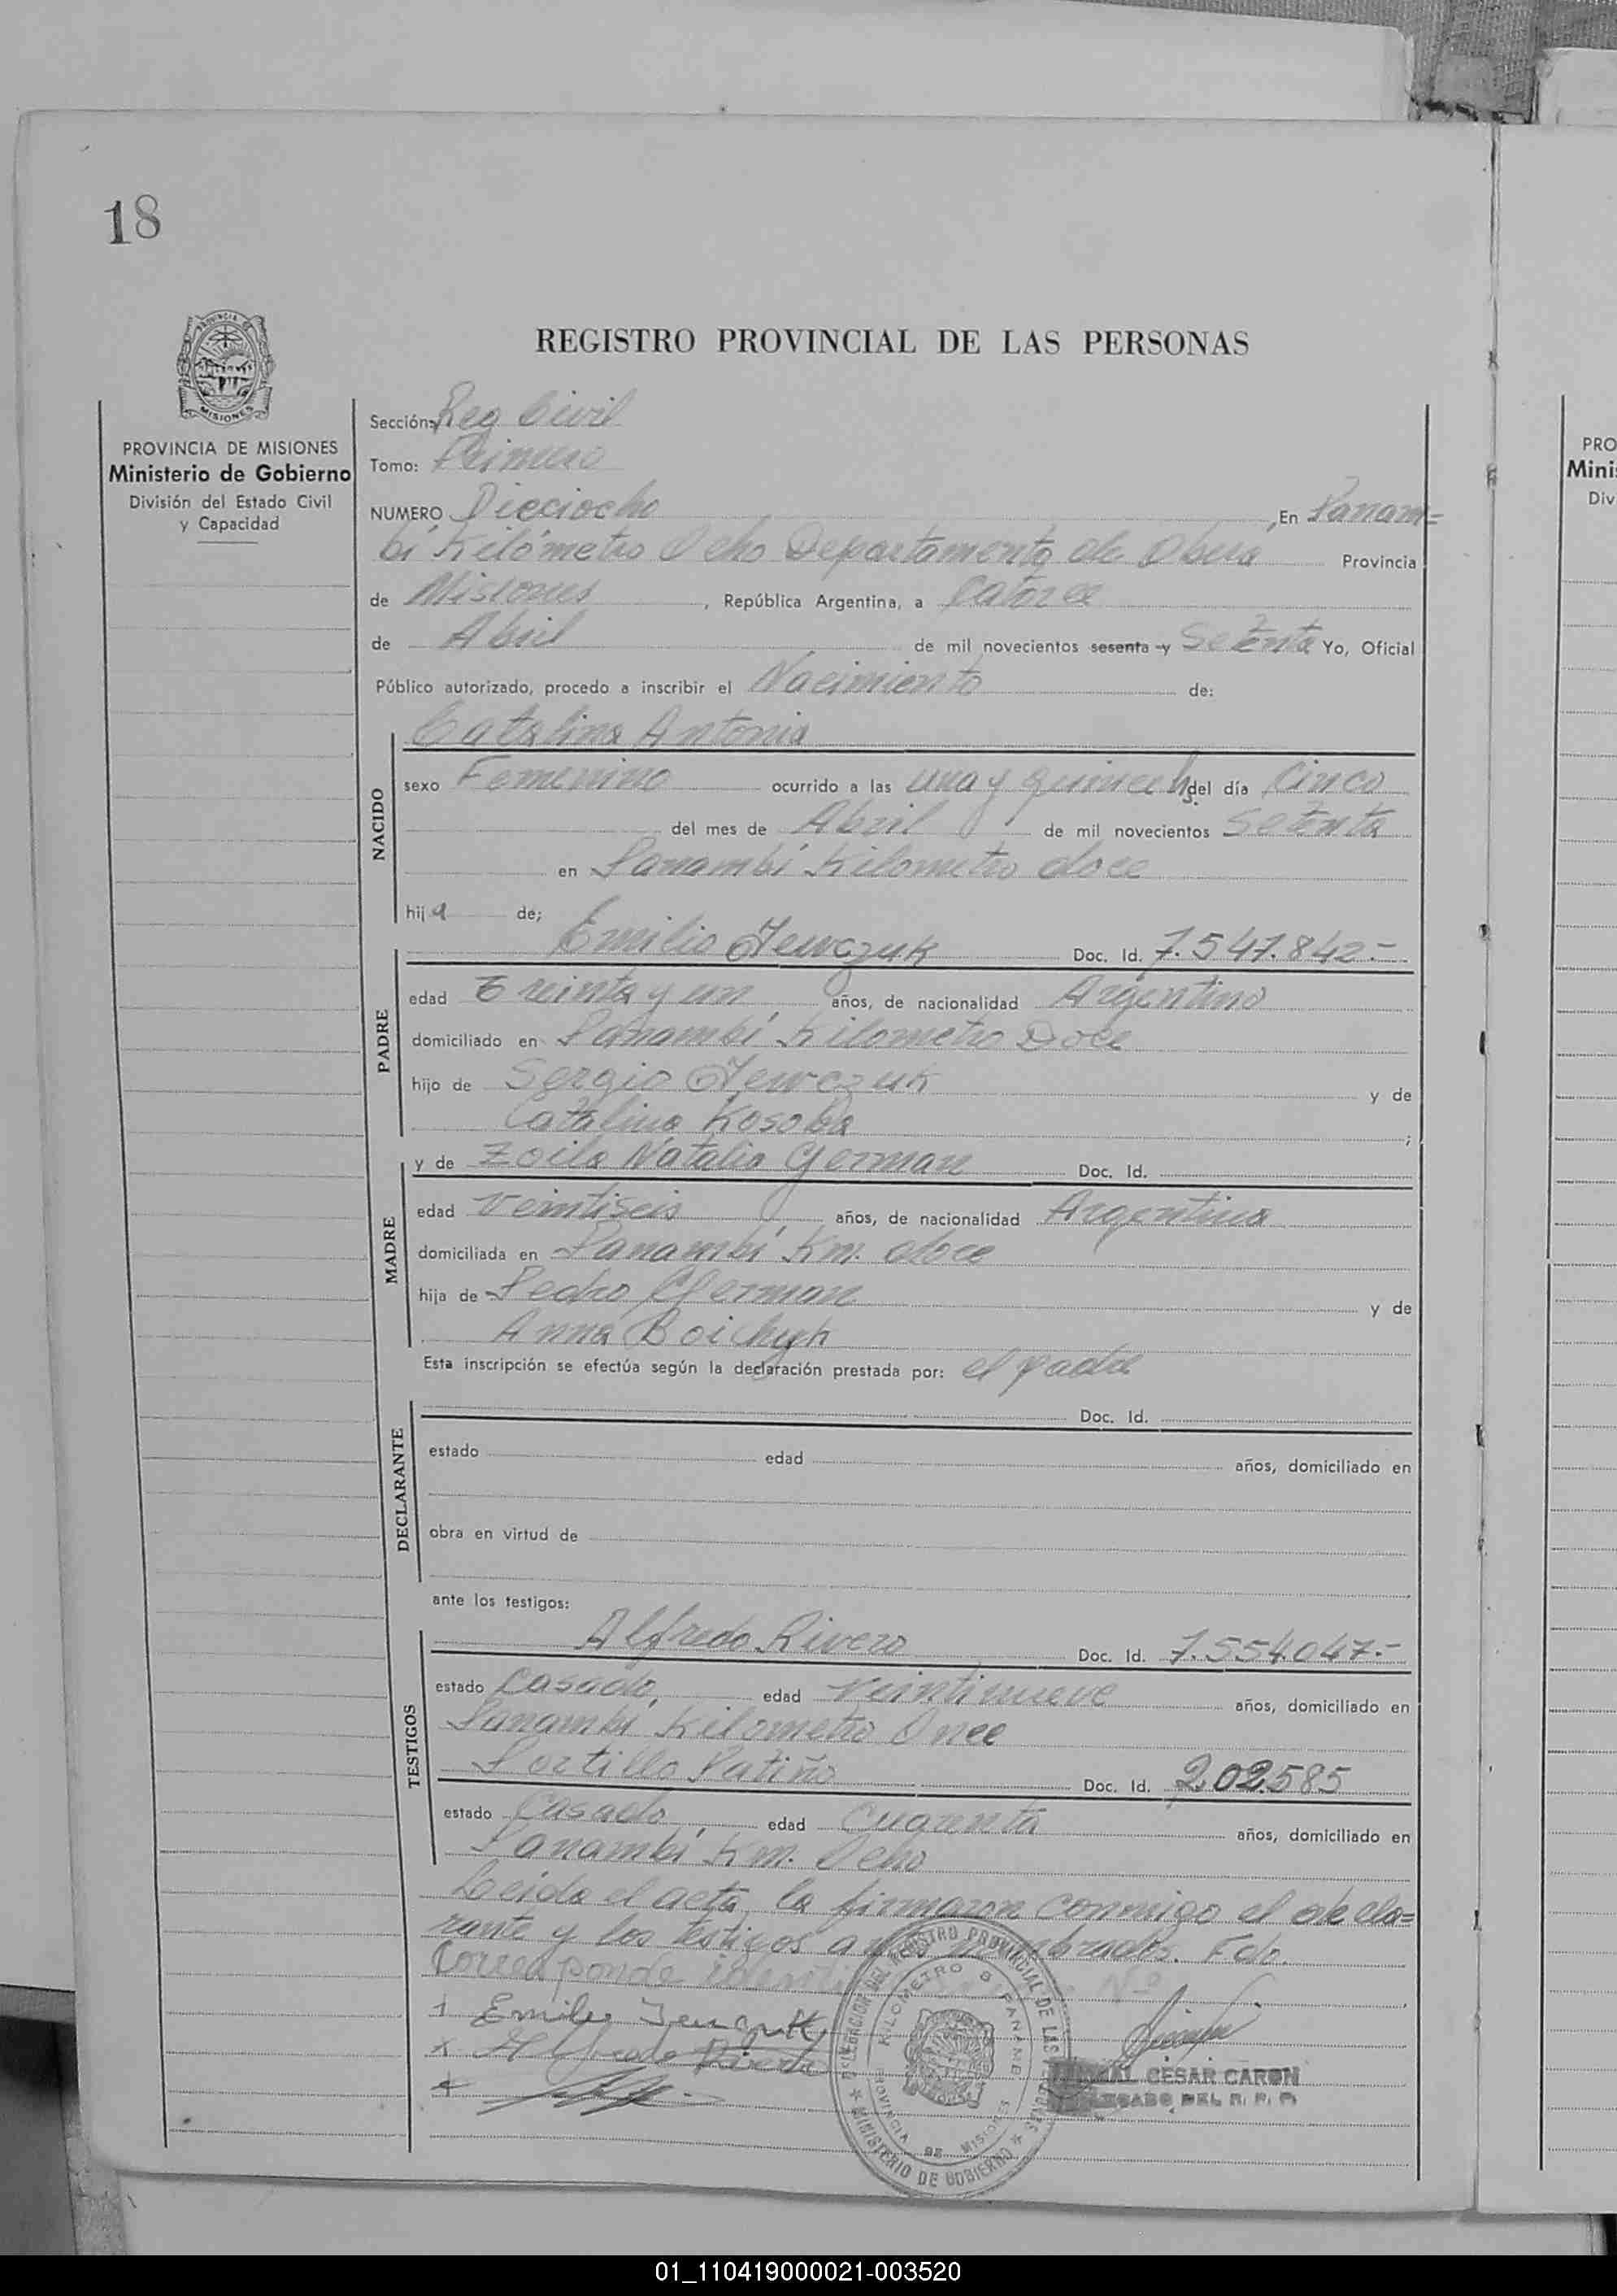 18
REGISTRO PROVINCIAL DE LAS PERSONAS
PROVINCIA DE MISIONES
Ministerio de Gobierno
División del Estado Civil
y Capacidad
Sección: Reg Civil
Tomo: Primero
NUMERO Dieciocho , En Panam=
bí Kilómetro Ocho Departamento de Oberá Provincia
de Misiones , República Argentina, a Catorce
de Abril de mil novecientos sesenta y Setenta Yo, Oficial
Público autorizado, procedo a inscribir el Nacimiento de:
Catalina Antonia
NACIDO
sexo Femenino ocurrido a las una y quince hs del día Cinco
del mes de Abril de mil novecientos Setenta
en Panambí Kilometro doce
hija de;
Emilio Jewczuk Doc. Id. 7.541.842.-
PADRE
edad Treinta y un años, de nacionalidad Argentino
domiciliado en Panambí Kilometro Doce
hijo de Sergio Jewczuk y de
Catalina Kosoba ;
y de Zoila Natalia German Doc. Id.
MADRE
edad Veintiseis años, de nacionalidad Argentina
domiciliada en Panambí Km. doce
hija de Pedro German y de
Anna Boichyk
Esta inscripción se efectúa según la declaración prestada por: el padre
Doc. Id.
DECLARANTE
estado edad años, domiciliado en
obra en virtud de
ante los testigos:
Alfredo Rivero Doc. Id. 7.554.047.-
TESTIGOS
estado Casado, edad Veintinueve años, domiciliado en
Panambí Kilometro Once
Portillo Patiño Doc. Id. 202.585
estado Casado, edad Cuarenta años, domiciliado en
Panambí Km. Ocho
Leida el acta, la firmaron conmigo el decla=
rante y los testigos Fdo.
Corresponde
+ Emilio
x Alfredo Rivero
+
DELEGACION DEL REGISTRO PROVINCIAL DE LAS
KILOMETRO 8 PANAMBI
PROVINCIA DE MISIONES
MINISTERIO DE GOBIERNO
CESAR CARON
DEL R. P. P.
PRO
Minis
Div
01_110419000021-003520